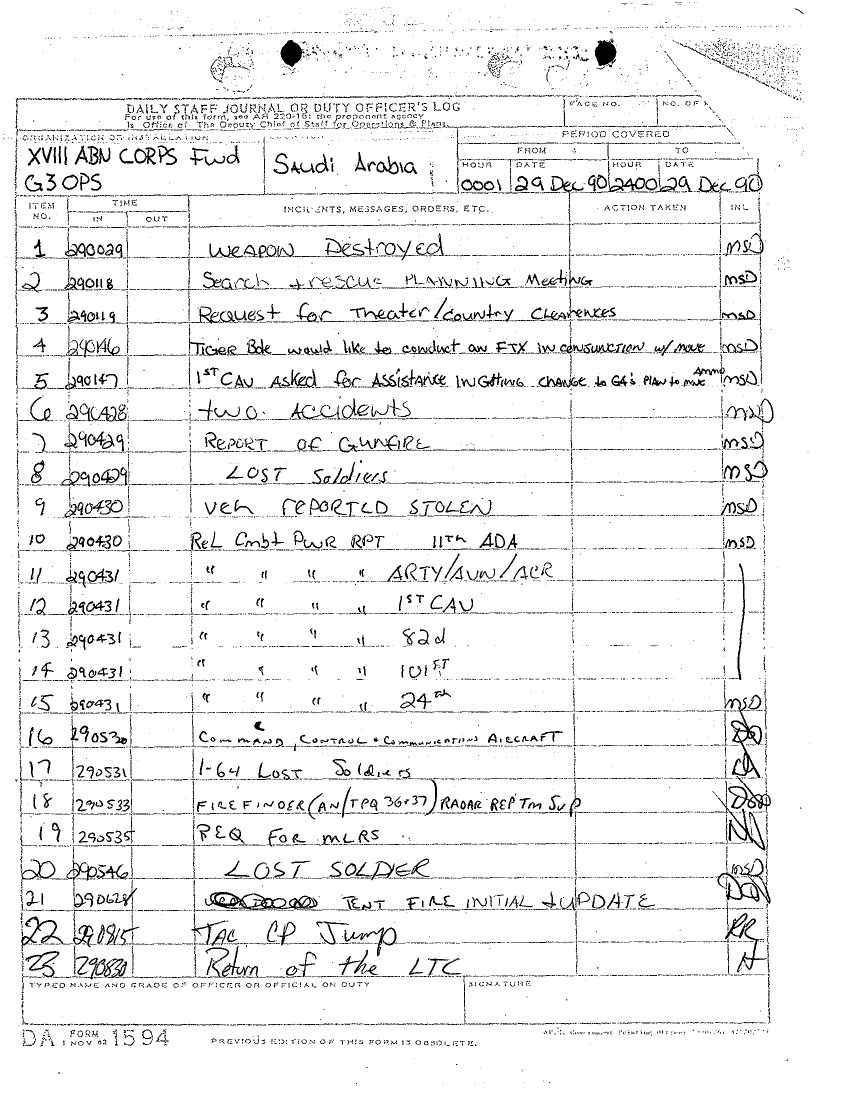 DAILY STAFF JOURNAL OR DUTY OFFICER'S LOG
For use of this form, see AR 220-15; the proponent agency
is Office of The Deputy Chief of Staff for Operations & Plans.
PAGE NO. NO. OF
ORGANIZATION OR INSTALLATION
PERIOD COVERED
XVIII ABN CORPS Fwd
G3 OPS
Saudi Arabia
FROM TO
HOUR DATE HOUR DATE
0001 29 Dec 90 2400 29 Dec 90
ITEM NO. TIME INCIDENTS, MESSAGES, ORDERS, ETC. ACTION TAKEN INL
IN OUT
1 290029 WEAPON Destroyed MSD
2 290118 Search + rescue PLANNING Meeting MSD
3 290119 Request for Theater/Country Clearences MSD
4 290146 TIGER Bde would like to conduct an FTX IN conjunction w/ move MSD
5 290147 1ST CAV Asked for Assistance IN Getting change to G4's PLAN to move Ammo MSD
6 290428 two Accidents MSD
7 290429 REPORT OF GUNFIRE MSD
8 290429 LOST Soldiers MSD
9 290430 veh rEPORTED STOLEN MSD
10 290430 ReL Cmbt PWR RPT 11th ADA MSD
11 290431 " " " " ARTY/AVN/ACR
12 290431 " " " " 1ST CAV
13 290431 " " " " 82d
14 290431 " " " " 101ST
15 290431 " " " " 24th MSD
16 290530 Command, Control + Communications AIRCRAFT
17 290531 1-64 Lost Soldiers
18 290533 FIREFINDER (AN/TPQ 36+37) RADAR REP Tm Sup
19 290535 REQ FOR MLRS
20 290546 LOST SOLDIER MSD
21 290628 TENT FIRE INITIAL + UPDATE
22 290815 TAC CP Jump RR
23 290830 Return of the LTC
TYPED NAME AND GRADE OF OFFICER OR OFFICIAL ON DUTY SIGNATURE
DA FORM 1 NOV 62 1594 PREVIOUS EDITION OF THIS FORM IS OBSOLETE.